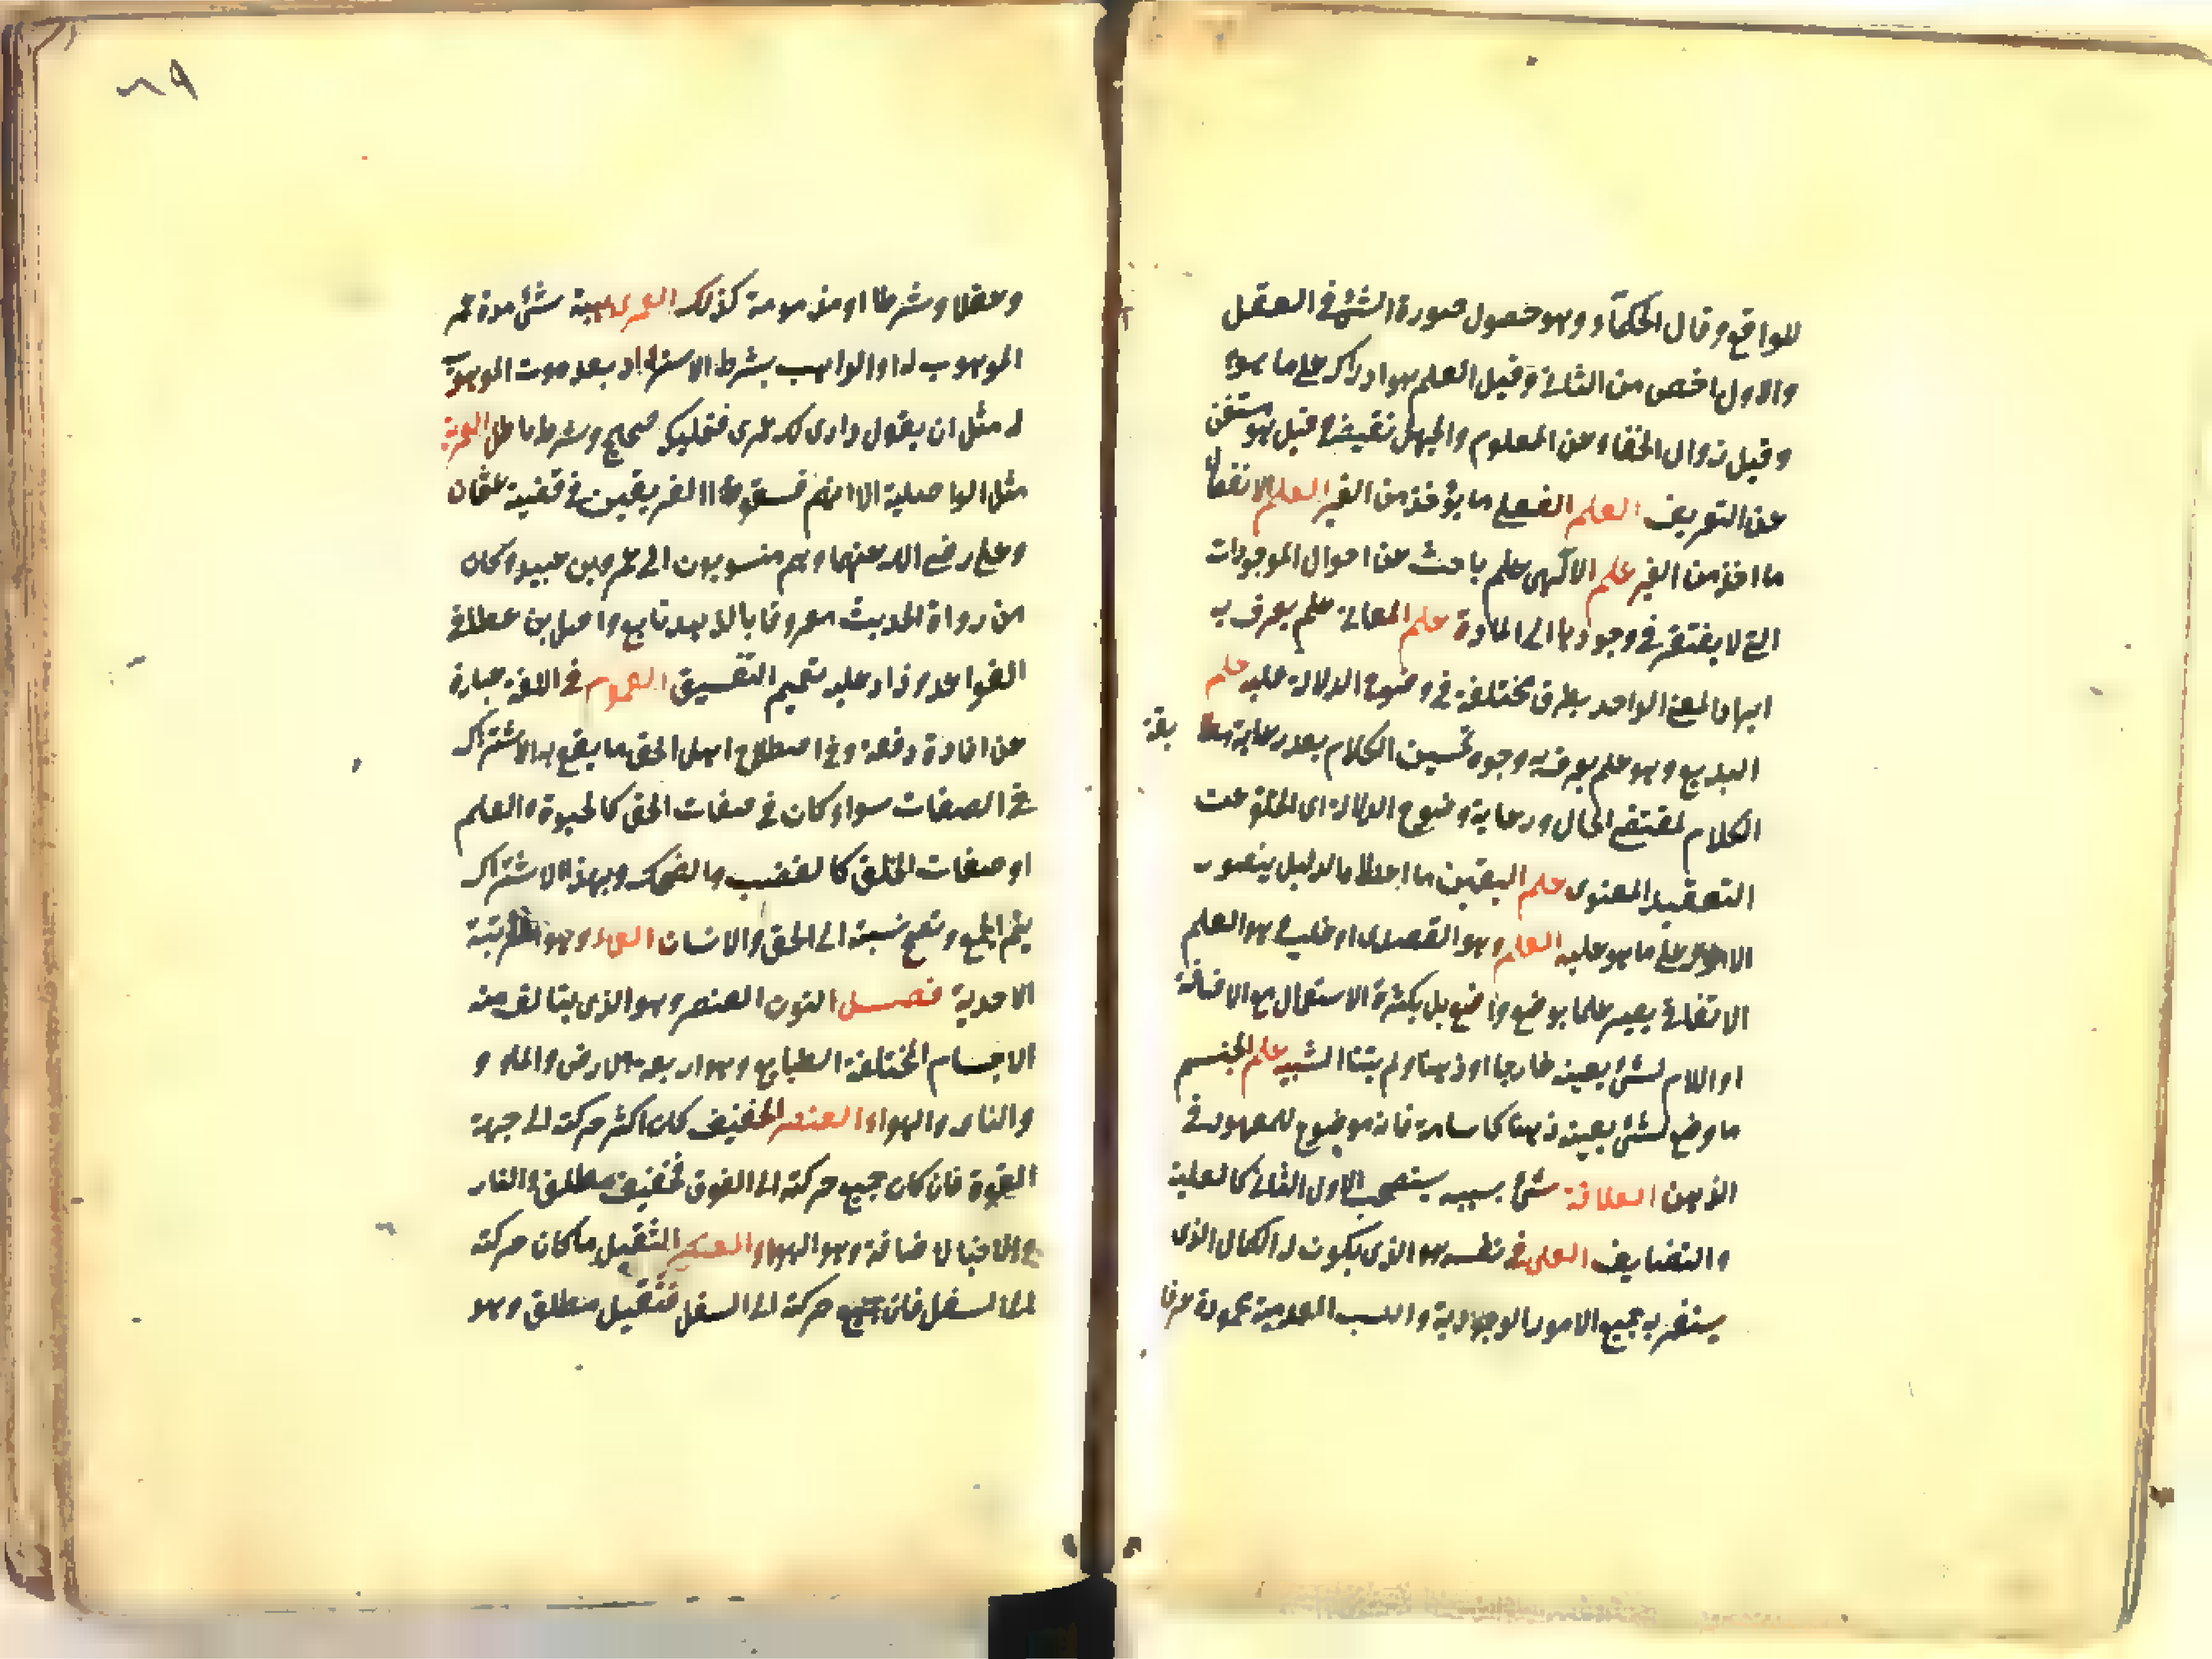 للواقع وقال الحكماء وهو حصول صورة الشئ في العقل
والاول اخص من الثاني وقيل العلم هو ادراك على ما هو
وقيل زوال الخفاء عن المعلوم والجهل نقيضه وقيل هو مستغن
عن التعريف العلم الفعلي ما يؤخذ من الغير العلم الانفعالي
ما اخذ من الغير علم الالهى علم باحث عن احوال الموجودات
التي لا يفتقر في وجودها الى المادة علم المعاني علم يعرف به
ايراد المعنى الواحد بطرق مختلفة في وضوح الدلالة عليه علم
البديع وهو علم يعرف به وجوه تحسين الكلام بعد رعاية مطا بقة
الكلام لمقتضى الحال ورعاية وضوح الدلالة اى الخلو عن
التعقيد المعنوى علم اليقين ما اعطاه الدليل بتصور
الامور على ما هو عليه العلم وهو القصدى او غلبى هو العلم
الاتفاقي يصير علما بوضع واضع بل بكثرة الاستعمال مع الاضافة
او اللام لشئ بعينه خارجا او ذهنا ولم يتناول الشبيه علم الجنس
ما وضع لشئ بعينه ذهنا كاسامة فانه موضوع للمعهود في
الذهن العلاقة شئ بسببه يستصحب الاول الثاني كالعلية
والتضايف العلى في نفسه هو الذى يكون له الكمال الذى
يستغرق به جميع الامور الوجودية والنسب العدمية محمودة عرفا
٨٩
وعقلا وشرعا او مذمومة كذلك العمرى هبة شئ مدة عمر
الموهوب له او الواهب بشرط الاسترداد بعد موت الموهوب
له مثل ان يقول دارى لك عمرى فتمليكه صحيح وشرطه باطل العمرية
مثل الواصلية الا انهم فسقوا الفريقين في قضية عثمان
وعلى رضى الله عنهما وهم منسوبون الى عمرو بن عبيد وكان
من رواة الحديث معروفا بالزهد تابع واصل بن عطا في
القواعد وزاد عليه تعميم التفسيق العموم في اللغة عبارة
عن افادة دفعة وفي اصطلاح اهل الحق ما يقع به الاشتراك
في الصفات سواء كان في صفات الحق كالحيوة والعلم
او صفات الخلق كالغضب والضحك وبهذا الاشتراك
يتم الجمع وتصح نسبته الى الحق والانسان العماء وهو المرتبة
الاحدية فصل النون العنصر وهو الذى يتالف منه
الاجسام المختلفة الطبايع وهو اربعة الارض والماء و
والنار والهواء العنصر الخفيف كان اكثر حركته الى جهة
الفوق فان كان جميع حركته الى الفوق فخفيف مطلق والنار
والا فبالاضافة وهو الهواء العنصر الثقيل ما كان حركته
الى السفل فان جميع حركته الى السفل فثقيل مطلق وهو